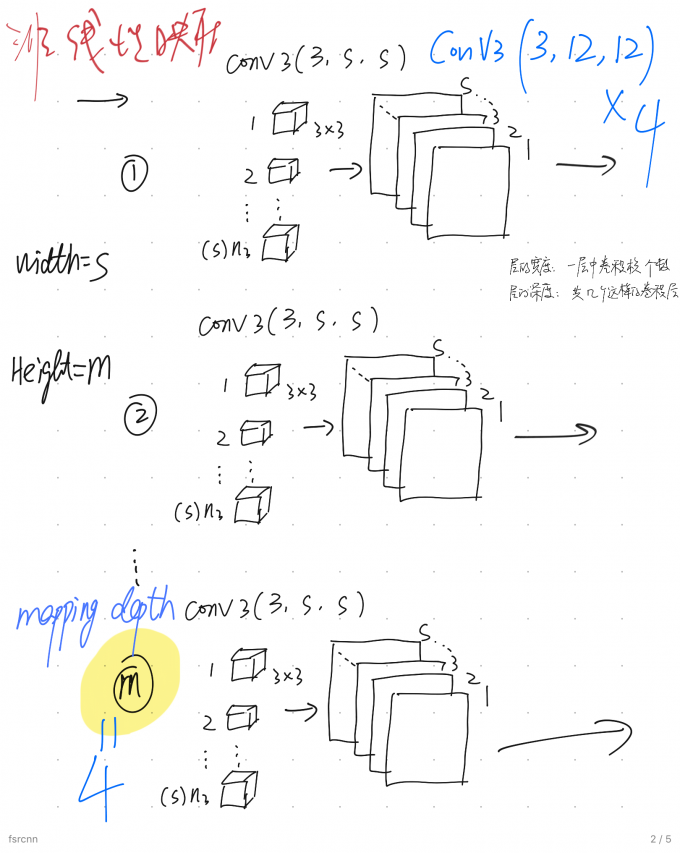 非线性映射
conv3(3, s, s)
Conv3(3,12,12)
×4
1
3×3
2
(s)n₂
①
s
3
2
1
width=s
层的宽度: 一层中卷积核个数
层的深度: 类几个这样的卷积层
Height=m
conv3(3, s, s)
1
3×3
2
(s)n₂
②
s
3
2
1
mapping depth
conv3(3, s, s)
1
3×3
2
(s)n₂
m
=
4
s
3
2
1
fsrcnn
2 / 5